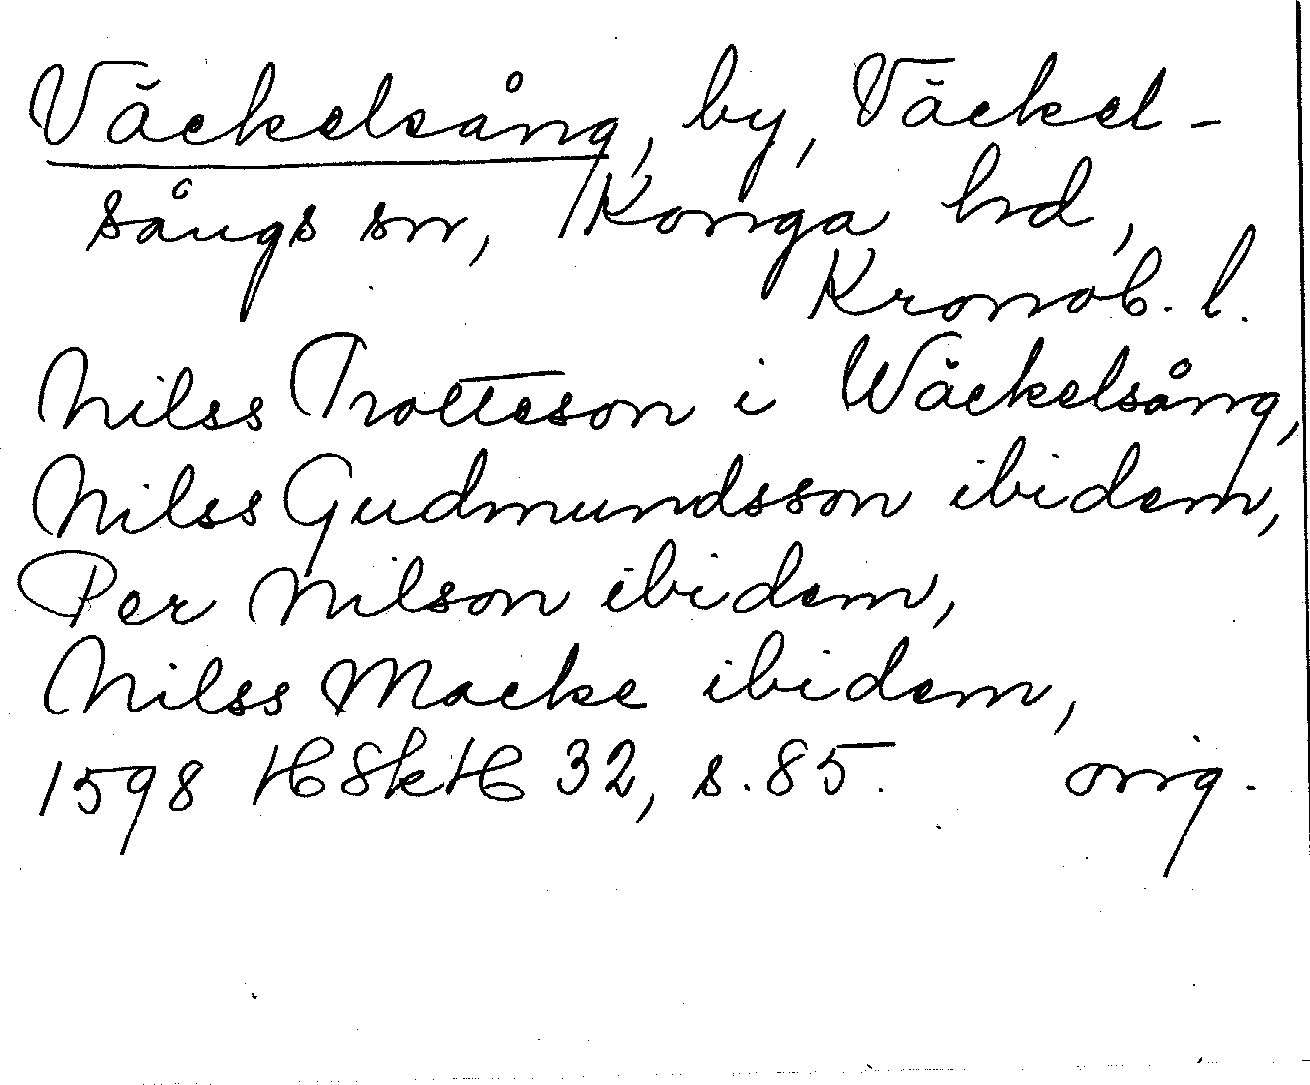 Väckelsång, by, Väckel-
sångs sn, Konga hd,
Kronob. l.
Nilss Trotteson i Wäckelsång,
Nilss Gudmundsson ibidem,
Per Nilson ibidem,
Nilss Macke ibidem,
1598 HSkH 32, s. 85. orig.